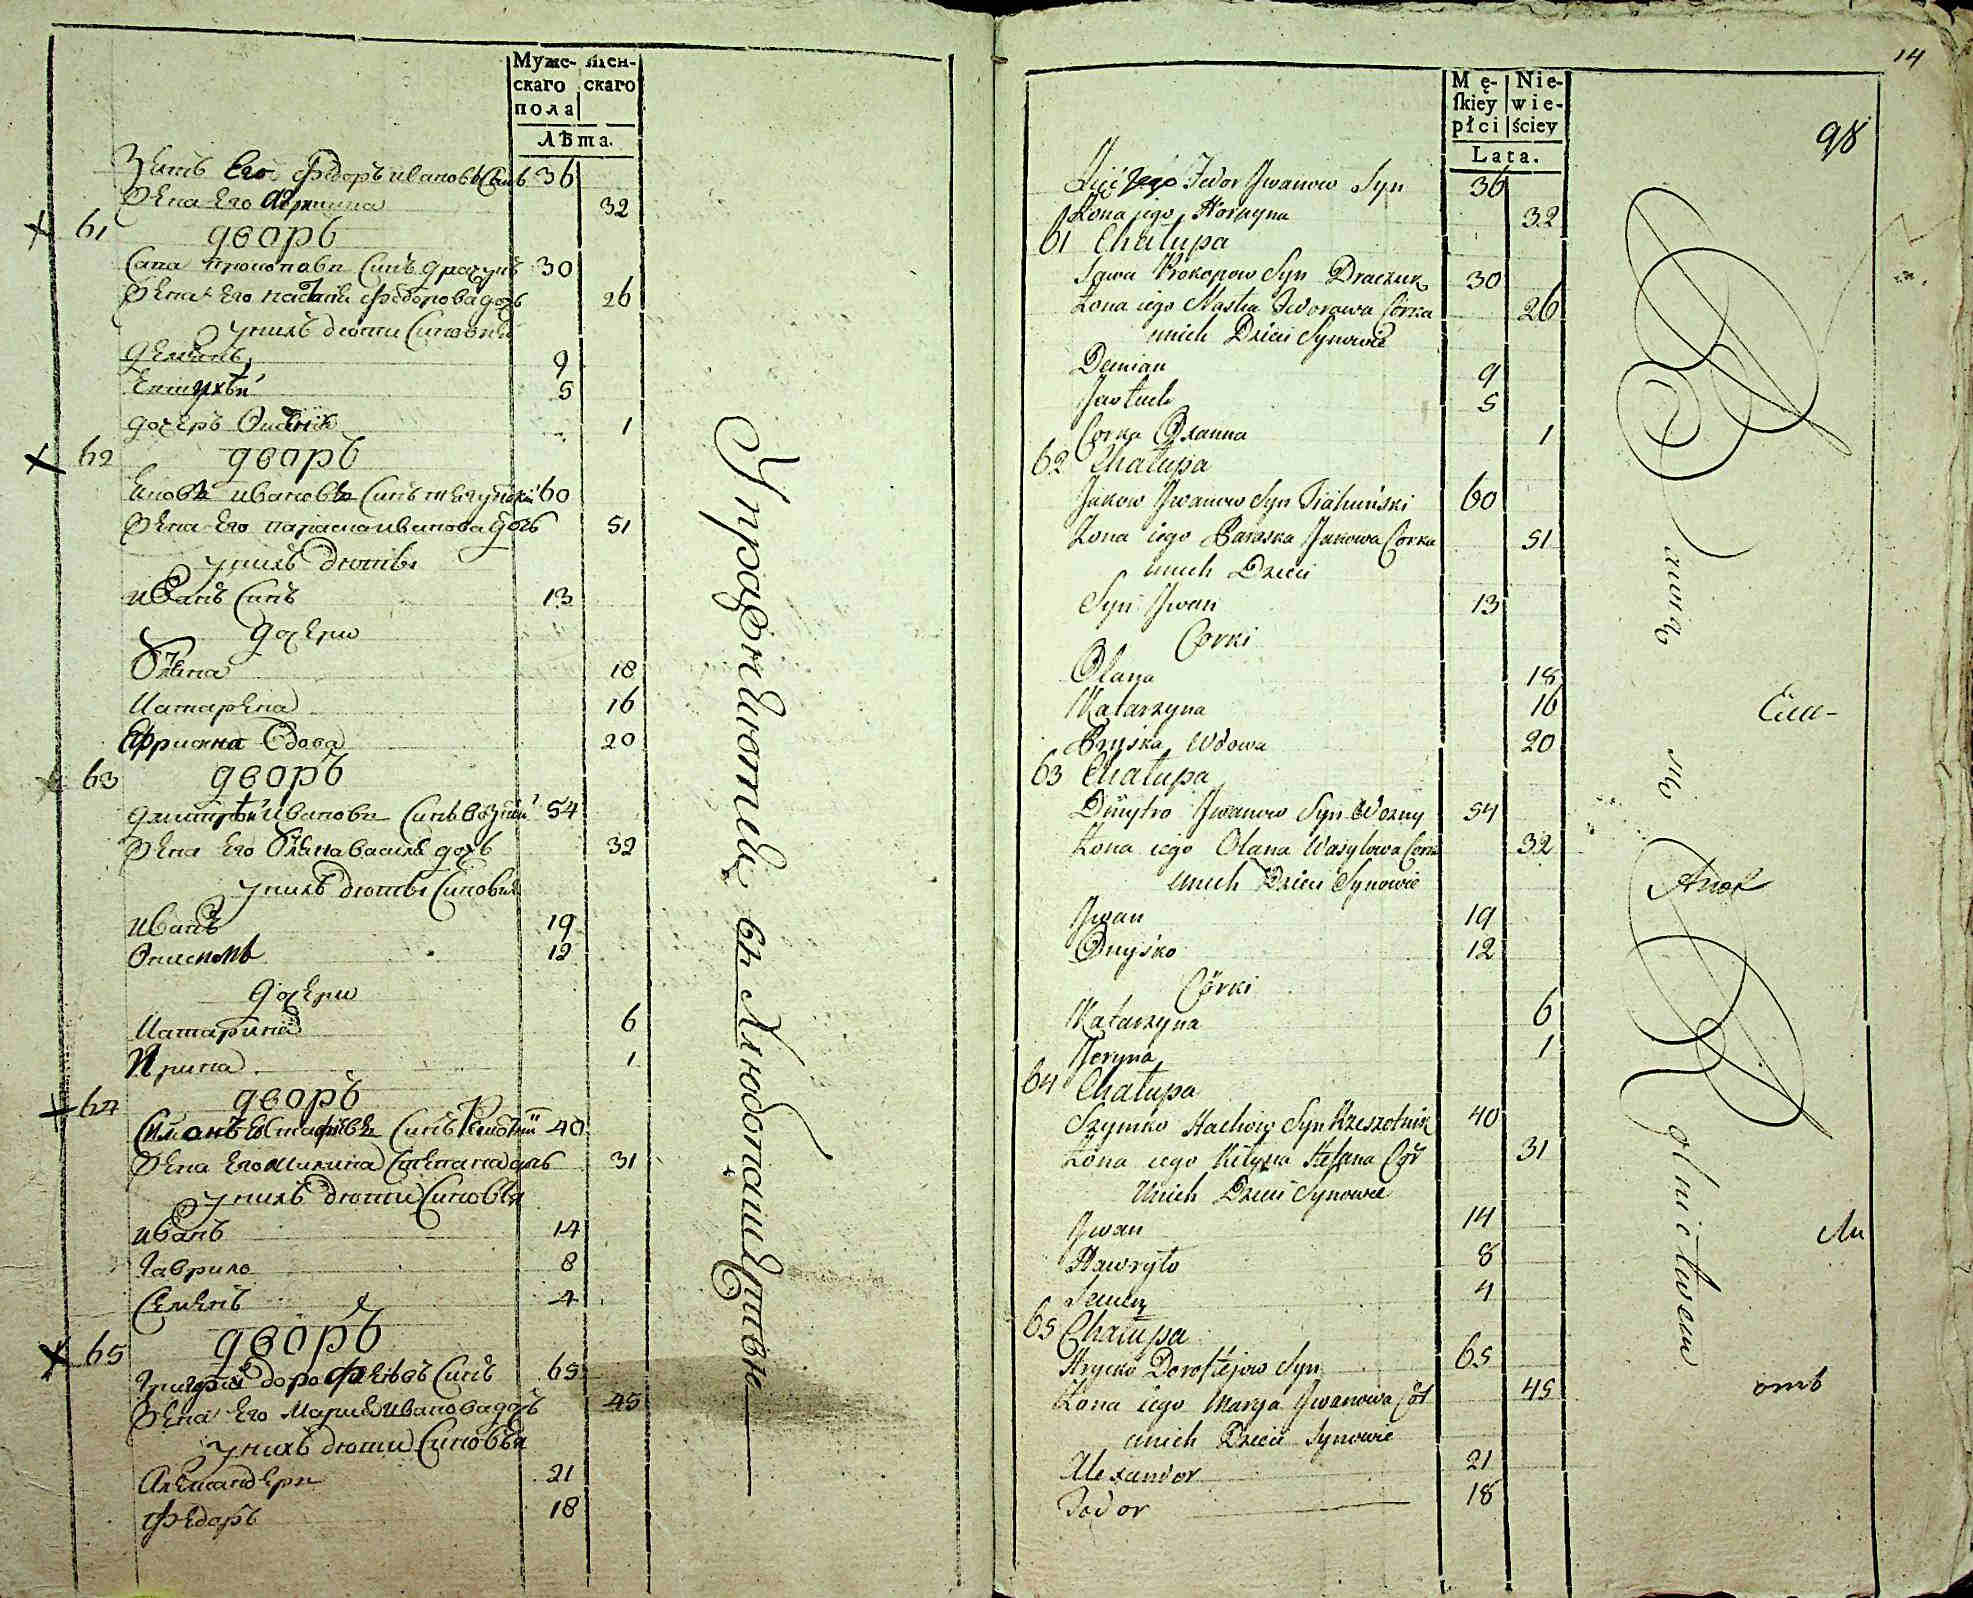 Муже-
скаго
пола
Жен-
скаго
Лѣта.
Зять Его Федоръ ивановъ Синъ 36
Жена Его 32
61 дворъ
Сава Прокоповъ Синъ драчукъ 30
Жена Его настя федорова дочь 26
у нихъ дюти Синовья
демянъ 9
Евтихѣй 5
дочерь Оксеня 1
62 дворъ
Яковъ ивановъ Синъ тягунскій 60
Жена Его параска иванова дочь 51
у нихъ дюти
иванъ Синъ 13
дочери
Олена 18
Катарена 16
вдова 20
63 дворъ
дмитрей ивановъ Синъ возній 54
Жена Его Олена василе дочь 32
у нихъ дюти Синовья
иванъ 19
Онисимъ 12
дочери
Катарина 6
Ирина 1
64 дворъ
Симонъ Остафіевъ Синъ 40
Жена Его Степана дочь 31
у нихъ дюти Синовья
иванъ 14
Гаврило 8
Семенъ 4
65 дворъ
Григорій дорофеевъ Синъ 65
Жена Его Мария иванова дочь 45
у нихъ дюти Синовья
Александеръ 21
Федоръ 18
Упражнюютца въ хлюбопашцтвѣ
14
98
Mę-
ſkiey
płci
Nie-
wie-
ściey
Lata.
Zięć Jego Fedor Jwanow Syn 36
Żona jego Horpyna 32
61 Chałupa
Sawa Prokopow Syn Draczuk 30
Żona iego Nastia Fedorowa Córka 26
unich Dzieci Synowie
Demian 9
Jawtuch 5
Corka Oxanna 1
62 Chałupa
Jakow Jwanow Syn Tiahuński 60
Żona iego Paraska Janowa Corka 51
unich Dzieci
Syn Jwan 13
Corki
Olana 18
Katarzyna 16
Pryśka Wdowa 20
63 Chałupa
Dmytro Jwanow Syn Wozny 54
Żona iego Olana Wasylowa Corka 32
unich Dzieci Synowie
Jwan 19
Onyśko 12
Córki
Katarzyna 6
Jeryna 1
64 Chałupa
Szymko Stachow Syn Rzeszotnik 40
Żona iego Kilyna Stefana Cór 31
Unich Dzieci Synowie
Jwan 14
Hawryło 8
Semen 4
65 Chałupa
Hrycko Dorofiejow Syn 65
Żona iego Marya Jwanowa Cór 45
unich Dzieci Synowie
Alexandor 21
Fedor 18
Rolnictwem